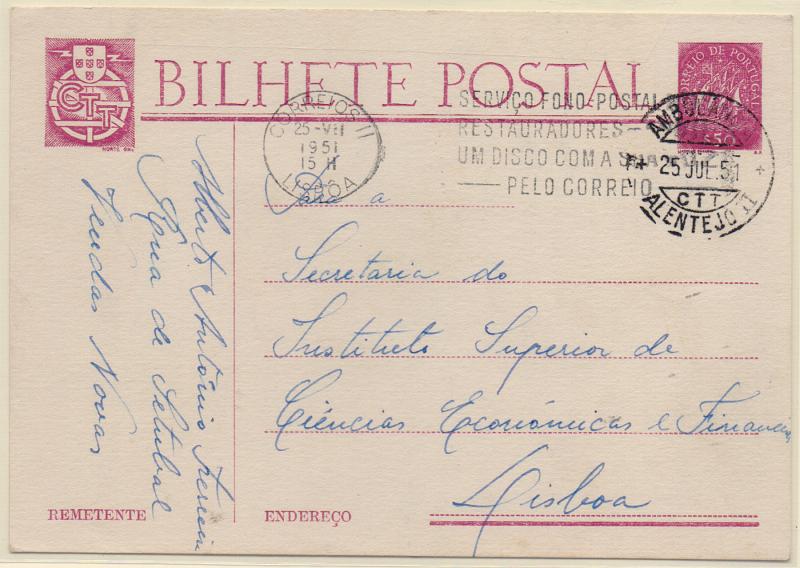 BILHETE POSTAL
CTT
NORTE
CORREIO DE PORTUGAL
$50
CORREIOS II
25-VII
1951
15 H
LISBOA
SERVIÇO FONO-POSTAL
RESTAURADORES-
UM DISCO COM A SUA VOZ
PELO CORREIO
25 JUL. 51
CTT
ALENTEJO II
Para a
Secretaria do
Instituto Superior de
Ciências Económicas e Financeiras
Lisboa
Alberto António Ferreira
Rua de Setubal
Vendas Novas
REMETENTE
ENDEREÇO